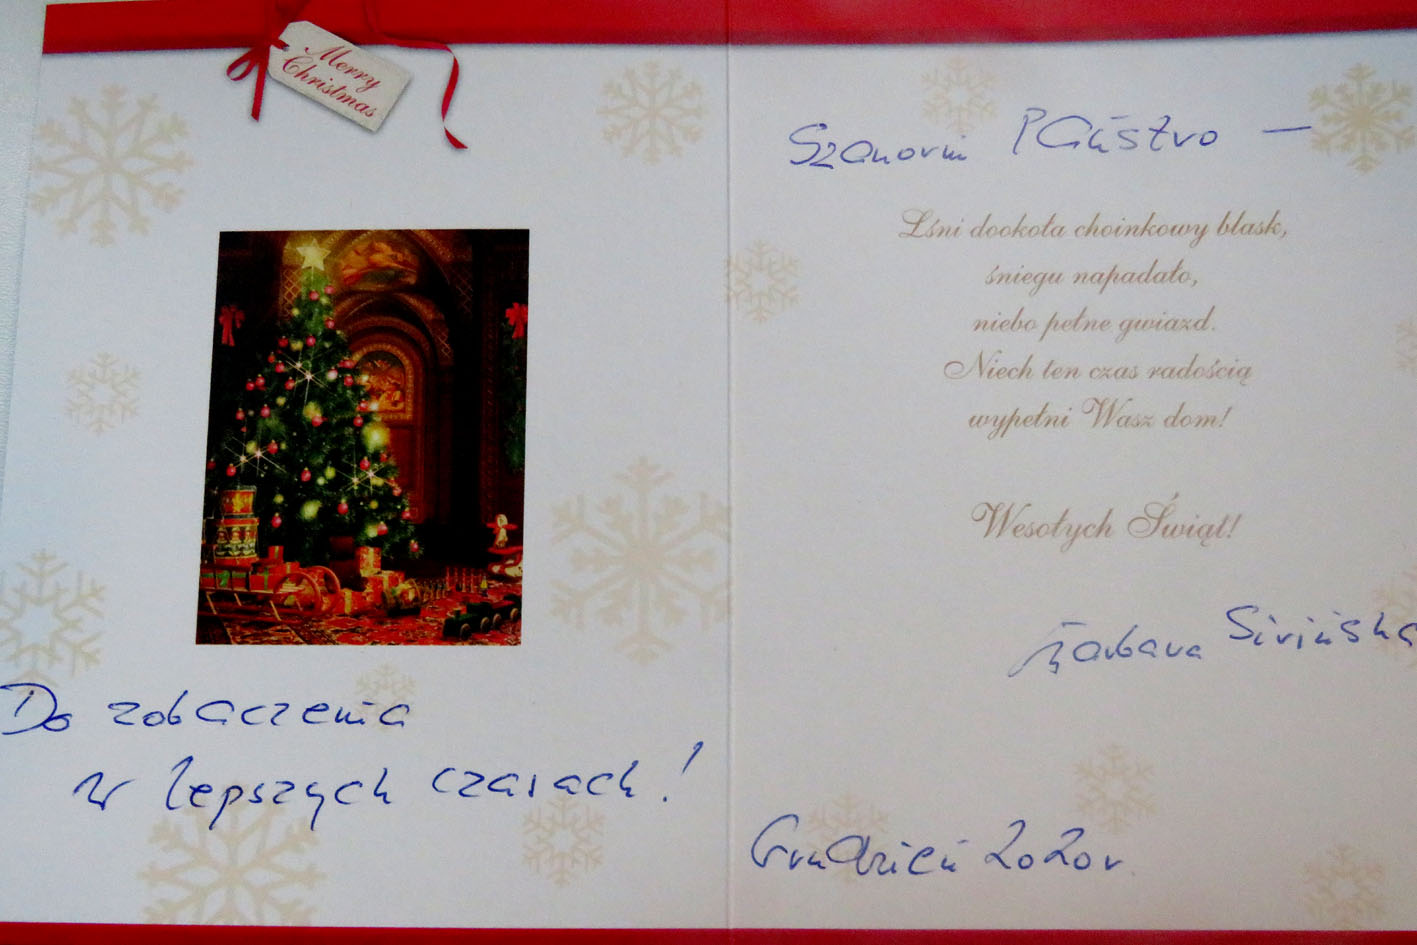 Merry
Christmas
Do zobaczenia
w lepszych czasach!
Szanowni Państwo —
Lśni dookoła choinkowy blask,
śniegu napadało,
niebo pełne gwiazd.
Niech ten czas radością
wypełni Wasz dom!
Wesołych Świąt!
Barbara
Grudzień 2020r.